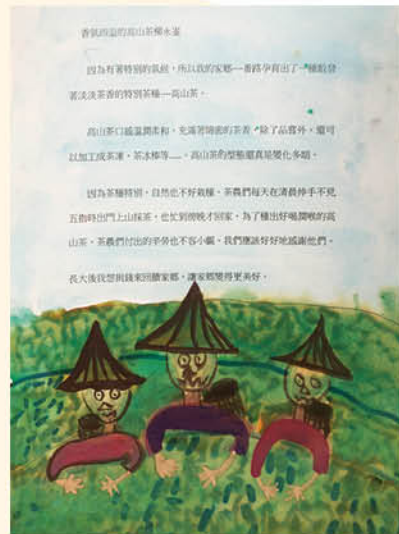 香氣四溢的高山茶樟水寮
因為有著特別的氣候，所以我的家鄉—番路孕育出了一種散發
著淡淡茶香的特別茶種—高山茶。
高山茶口感溫潤柔和，充滿著綿密的茶香，除了品嘗外，還可
以加工成茶凍、茶冰棒等……，高山茶的型態還真是變化多端。
因為茶種特別，自然也不好栽種，茶農們每天在清晨伸手不見
五指時出門上山採茶，也忙到傍晚才回家，為了種出好喝潤喉的高
山茶，茶農們付出的辛勞也不容小覷，我們應該好好地感謝他們。
長大後我想捐錢來回饋家鄉，讓家鄉變得更美好。